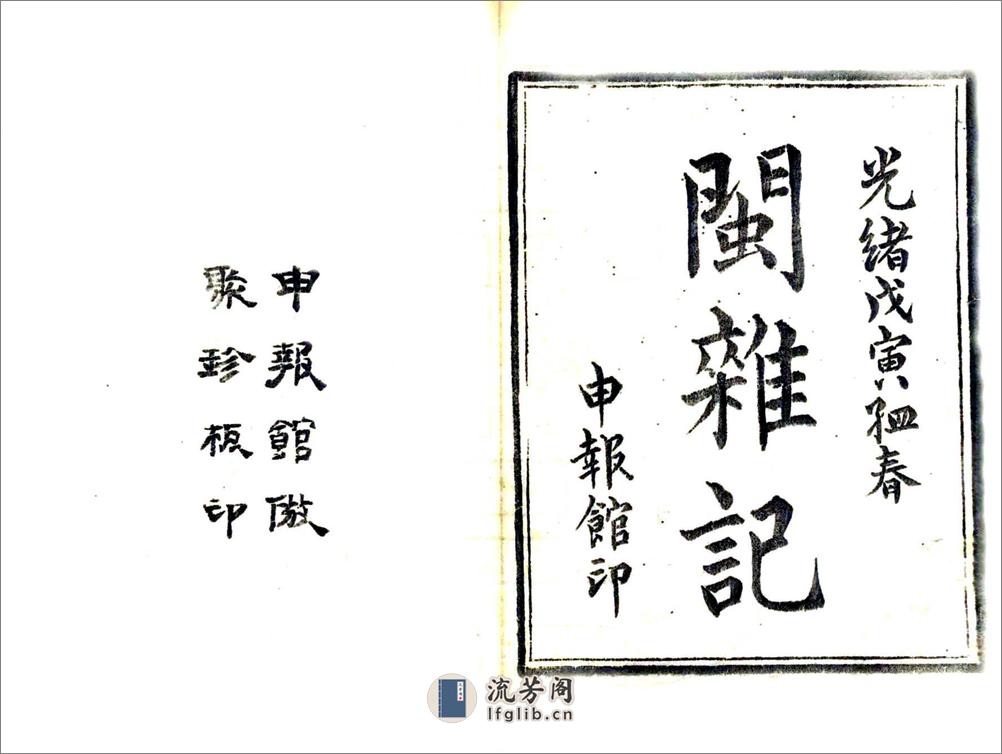 光緒戊寅孟春
閩雜記
申報館印
申報館倣
聚珍板印
流芳阁
lfglib.cn